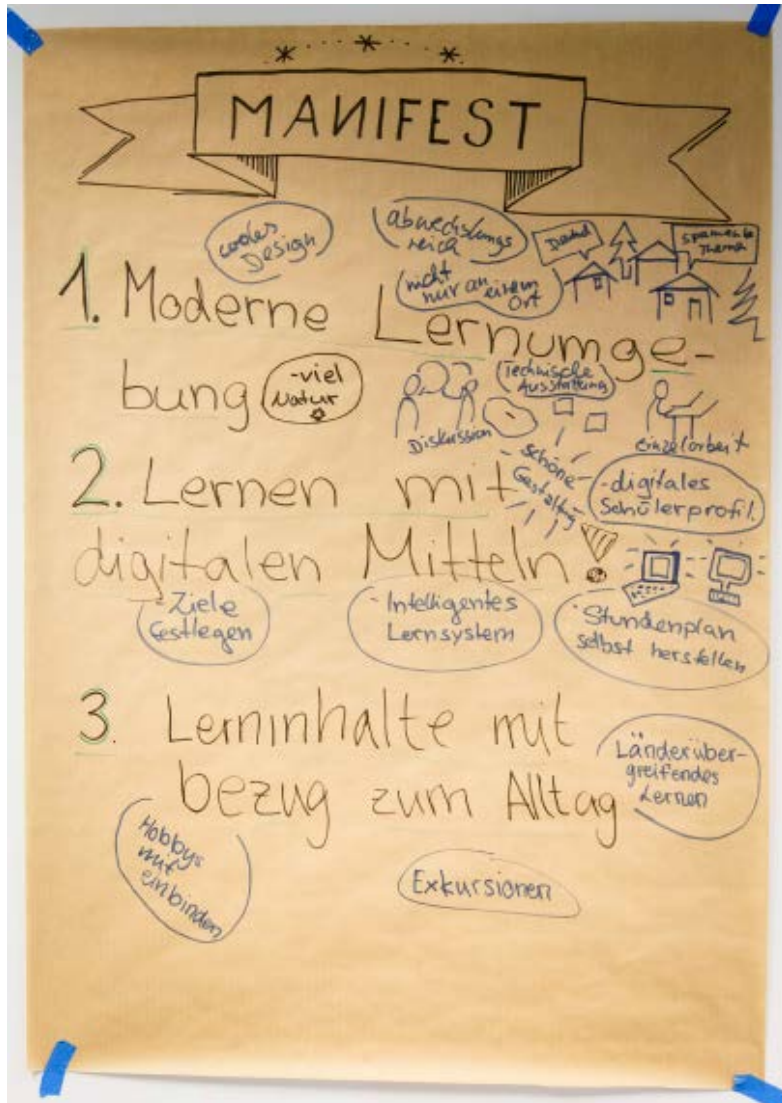 MANIFEST
cooles
Design
abwechslungs
reich
nicht
nur an einem
Ort
spannende
Thema
1. Moderne Lernumge-
bung
-viel
Natur
Technische
Ausstattung
Diskussion
einzelarbeit
schöne
Gestaltung
2. Lernen mit
digitalen Mitteln!
-digitales
Schülerprofil.
- Ziele
festlegen
- Intelligentes
Lernsystem
- Stundenplan
selbst herstellen
3. Lerninhalte mit
bezug zum Alltag
Länderüber-
greifendes
Lernen
Hobbys
mit
einbinden
Exkursionen